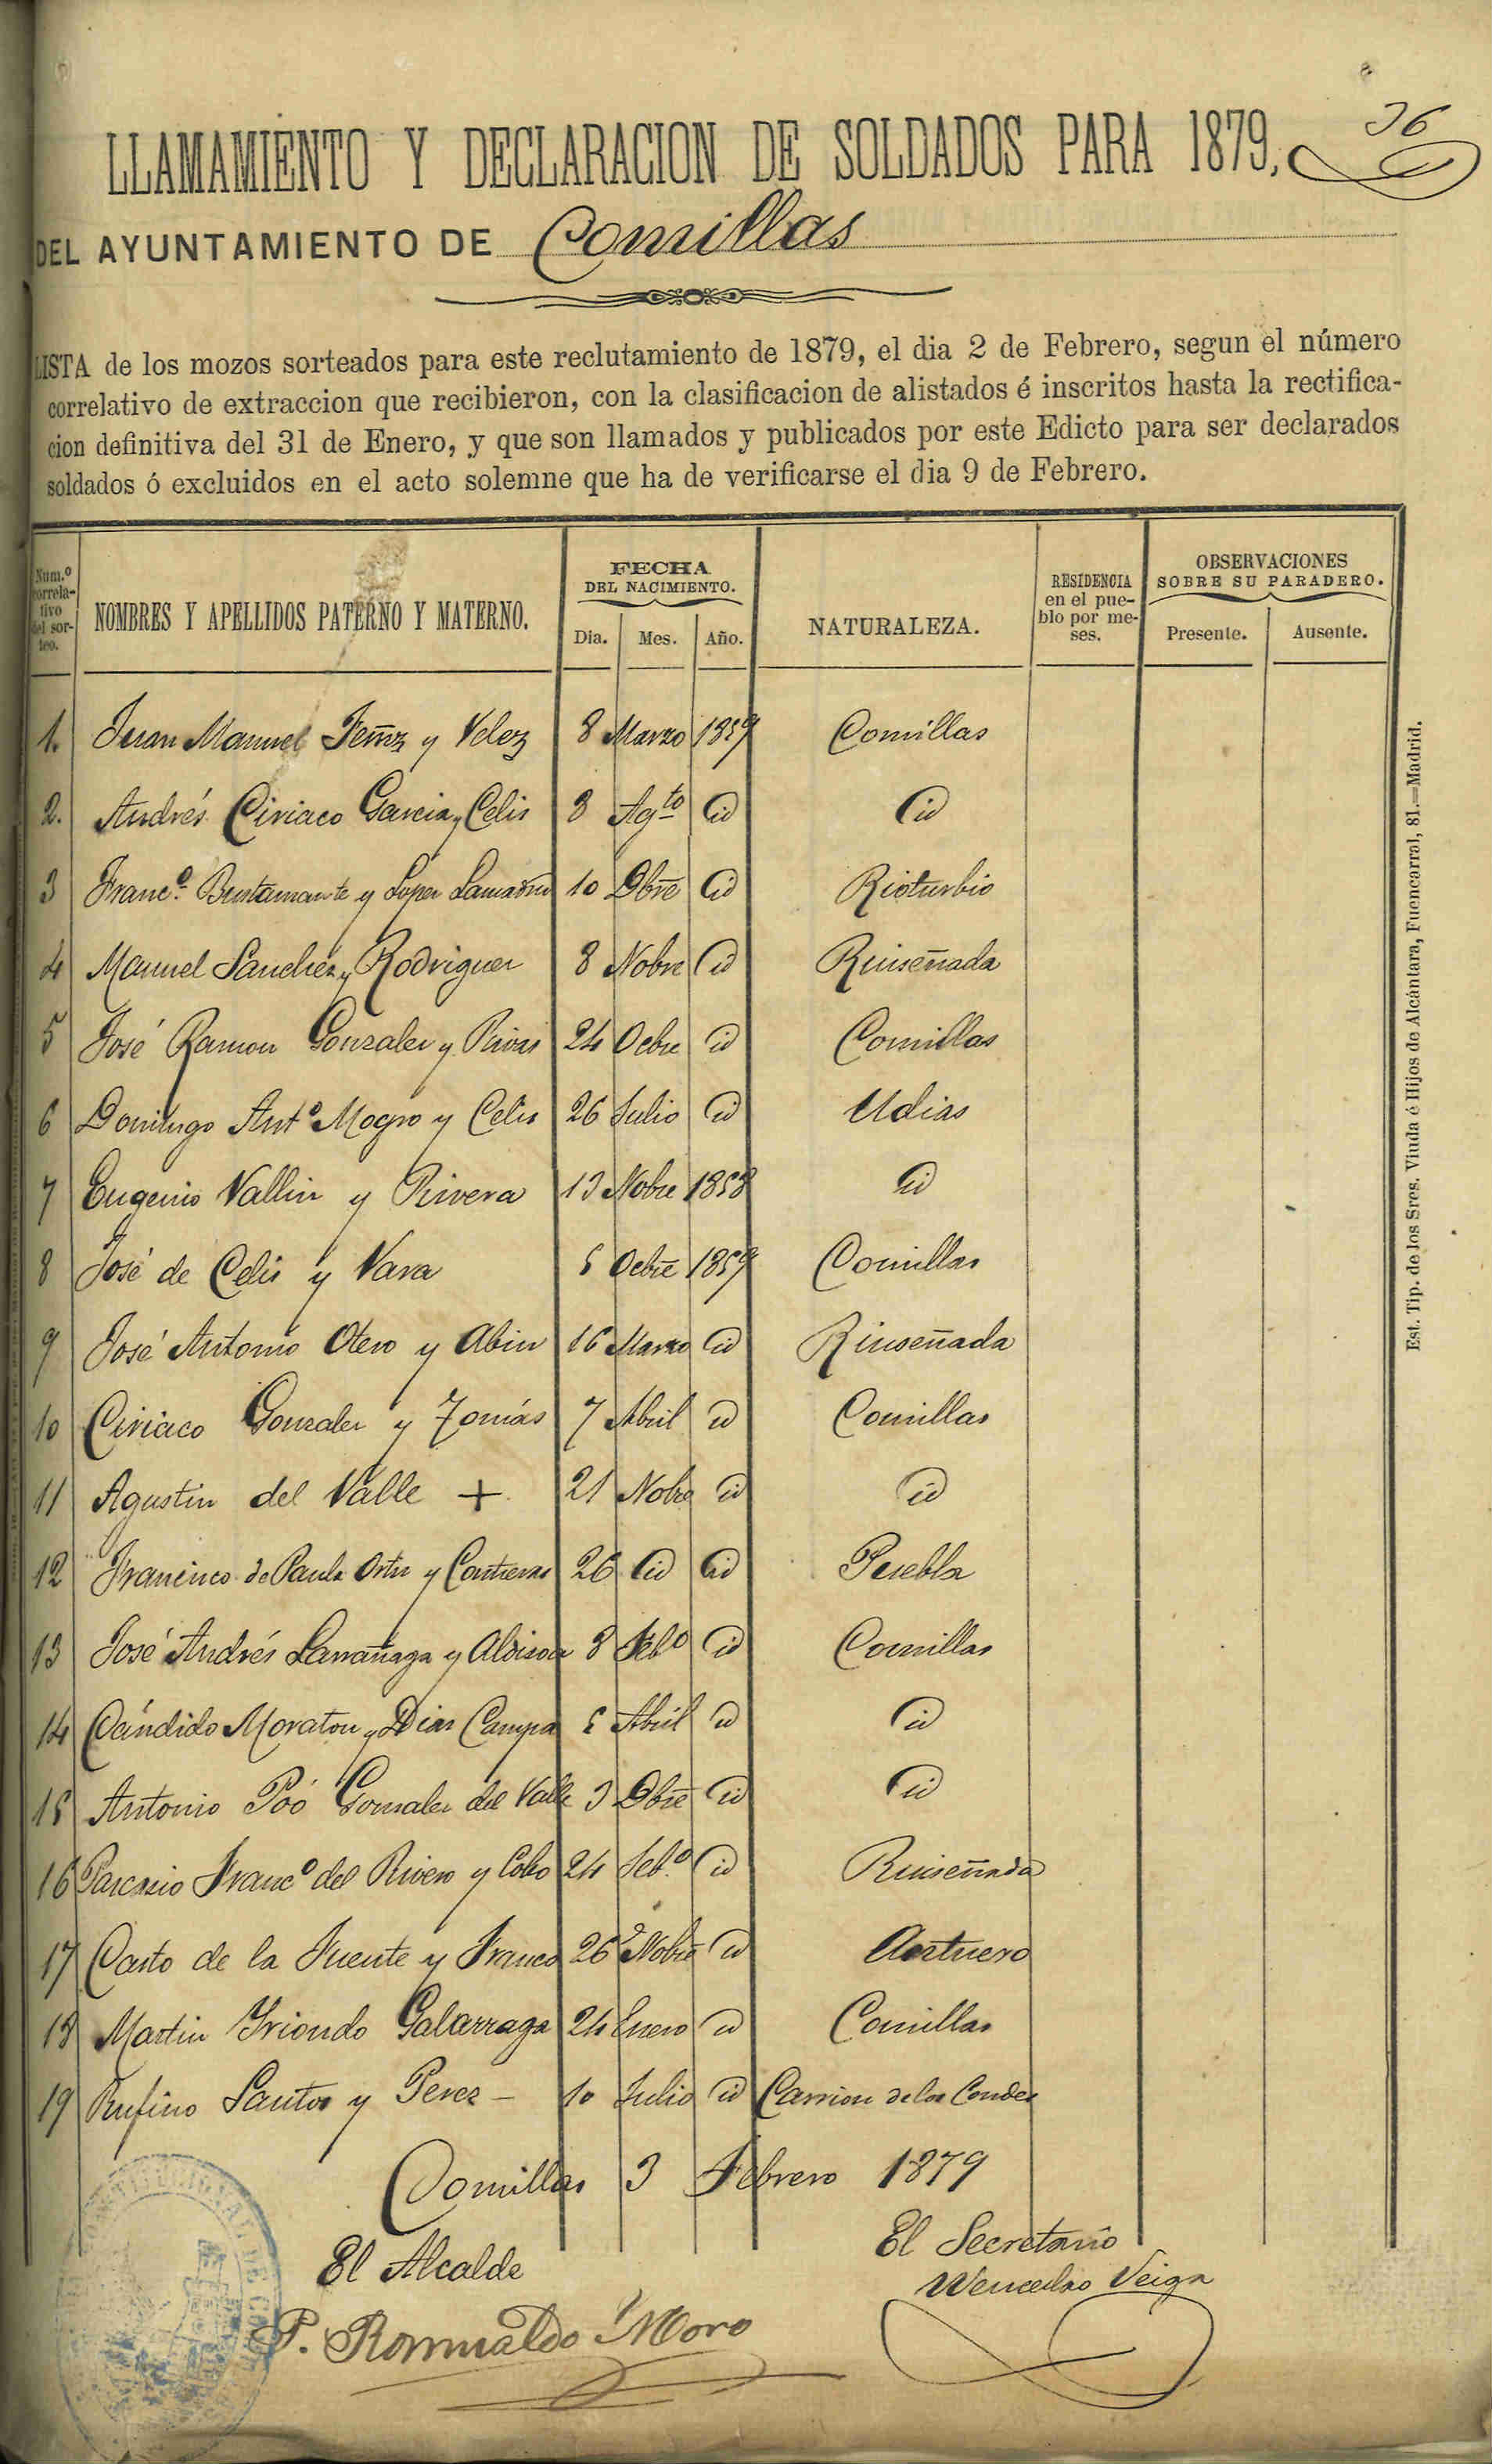 36
LLAMAMIENTO Y DECLARACION DE SOLDADOS PARA 1879,
DEL AYUNTAMIENTO DE Comillas
LISTA de los mozos sorteados para este reclutamiento de 1879, el dia 2 de Febrero, segun el número
correlativo de extraccion que recibieron, con la clasificacion de alistados é inscritos hasta la rectifica-
cion definitiva del 31 de Enero, y que son llamados y publicados por este Edicto para ser declarados
soldados ó excluidos en el acto solemne que ha de verificarse el dia 9 de Febrero.
Num.º correla-tivo del sor-teo.
NOMBRES Y APELLIDOS PATERNO Y MATERNO.
FECHA
DEL NACIMIENTO.
Dia. Mes. Año.
NATURALEZA.
RESIDENCIA
en el pue-
blo por me-
ses.
OBSERVACIONES
SOBRE SU PARADERO.
Presente. Ausente.
1. Juan Manuel Fern̄z y Velez 8 Marzo 1859 Comillas
2. Andrés Ciriaco Garcia y Celis 8 Agto id id
3 Francº Bustamante y Lopez Lamadrid 10 Dbre id Rioturbio
4 Manuel Sanchez y Rodriguez 8 Nobre id Ruiseñada
5 José Ramon Gonzalez y Rivas 24 Ocbre id Comillas
6 Domingo Antº Mogro y Celis 26 Julio id Udias
7 Eugenio Vallin y Rivera 13 Nobre 1858 id
8 José de Celis y Vara 5 Ocbre 1859 Comillas
9 José Antonio Otero y Abin 16 Marzo id Ruiseñada
10 Ciriaco Gonzalez y Tomás 7 Abril id Comillas
11 Agustin del Valle + 21 Nobre id id
12 Francisco de Paula Ortiz y Contreras 26 id id Puebla
13 José Andrés Larrañaga y 8 Febº id Comillas
14 Cándido Moraton y Diaz Campa 5 Abril id id
15 Antonio Poó Gonzalez del Valle 3 Dbre id id
16 Pascasio Francº del Rivero y Cobo 24 Febº id Ruiseñada
17 Casto de la Fuente y Franco 26 Nobre id
18 Martin Yriondo Galarraga 24 Enero id Comillas
19 Rufino Santos y Perez – 10 Julio id Carrion de los Condes
Comillas 3 Febrero 1879
El Alcalde
El Secretario
P. Romualdo Moro
Wenceslao Veiga
Est. Tip. de los Sres. Viuda é Hijos de Alcántara, Fuencarral, 81.—Madrid.